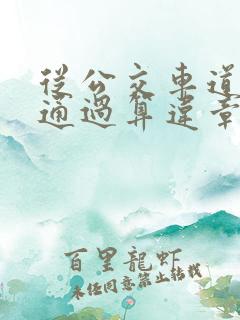 從公交車道
通過算違章
百里龍蝦
未任同意禁止转载